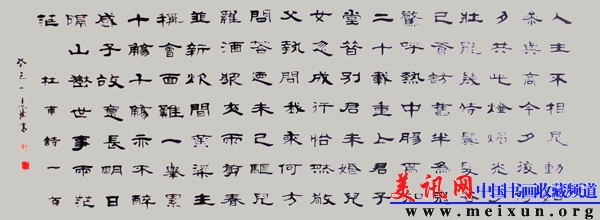 人生不相見動如
參與商今夕復何
夕共此燈燭光少
壯能幾時鬢髮各
已蒼訪舊半為鬼
驚呼熱中腸焉知
二十載重上君子
堂昔別君未婚兒
女忽成行怡然敬
父執問我來何方
問荅迺未已驅兒
羅酒漿夜雨剪春
韭新炊間黃粱主
稱會面難一舉累
十觴十觴亦不醉
感子故意長明日
隔山嶽世事兩茫
茫 杜甫詩一首
癸巳
美讯网 中国书画收藏频道
www.meixun.org